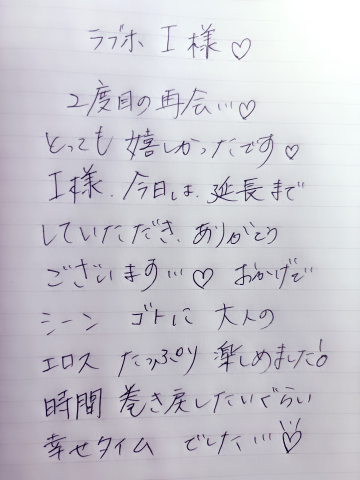 ラブホ I様♡
2度目の再会…♡
とっても 嬉しかったです♡
I様、今日は、延長まで
していただき、ありがとう
ございます…♡ おかげで
シーン ゴトに 大人の
エロス たっぷり 楽しめました!
時間 巻き戻したいぐらい
幸せタイム でした…♡